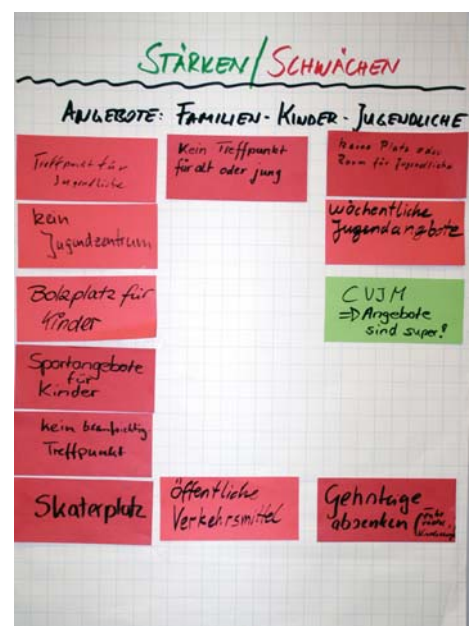 STÄRKEN/SCHWÄCHEN
ANGEBOTE: FAMILIEN - KINDER - JUGENDLICHE
Treffpunkt für
Jugendliche
kein
Jugendzentrum
Bolzplatz für
Kinder
Sportangebote
für
Kinder
kein
Treffpunkt
Skaterplatz
Kein Treffpunkt
für alt oder jung
Öffentliche
Verkehrsmittel
keine Platz oder
Raum für Jugendliche
wöchentliche
Jugendangebote
CVJM
=D Angebote
sind super!
absenken